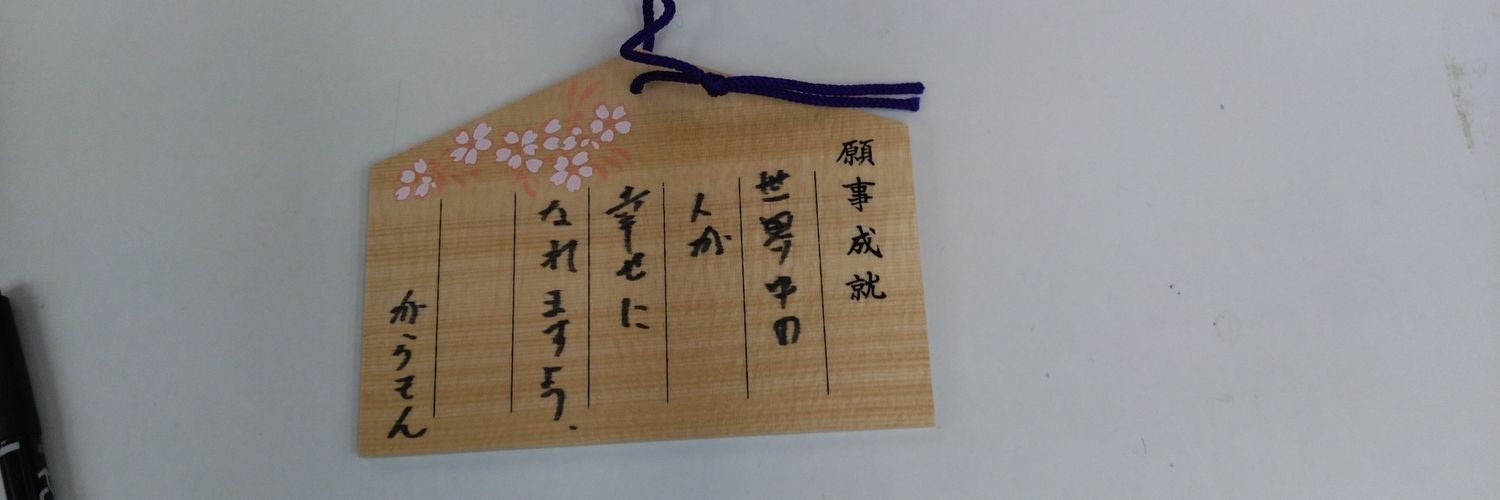 願事成就
世界中の
人が
幸せに
なれますよう.
がうもん